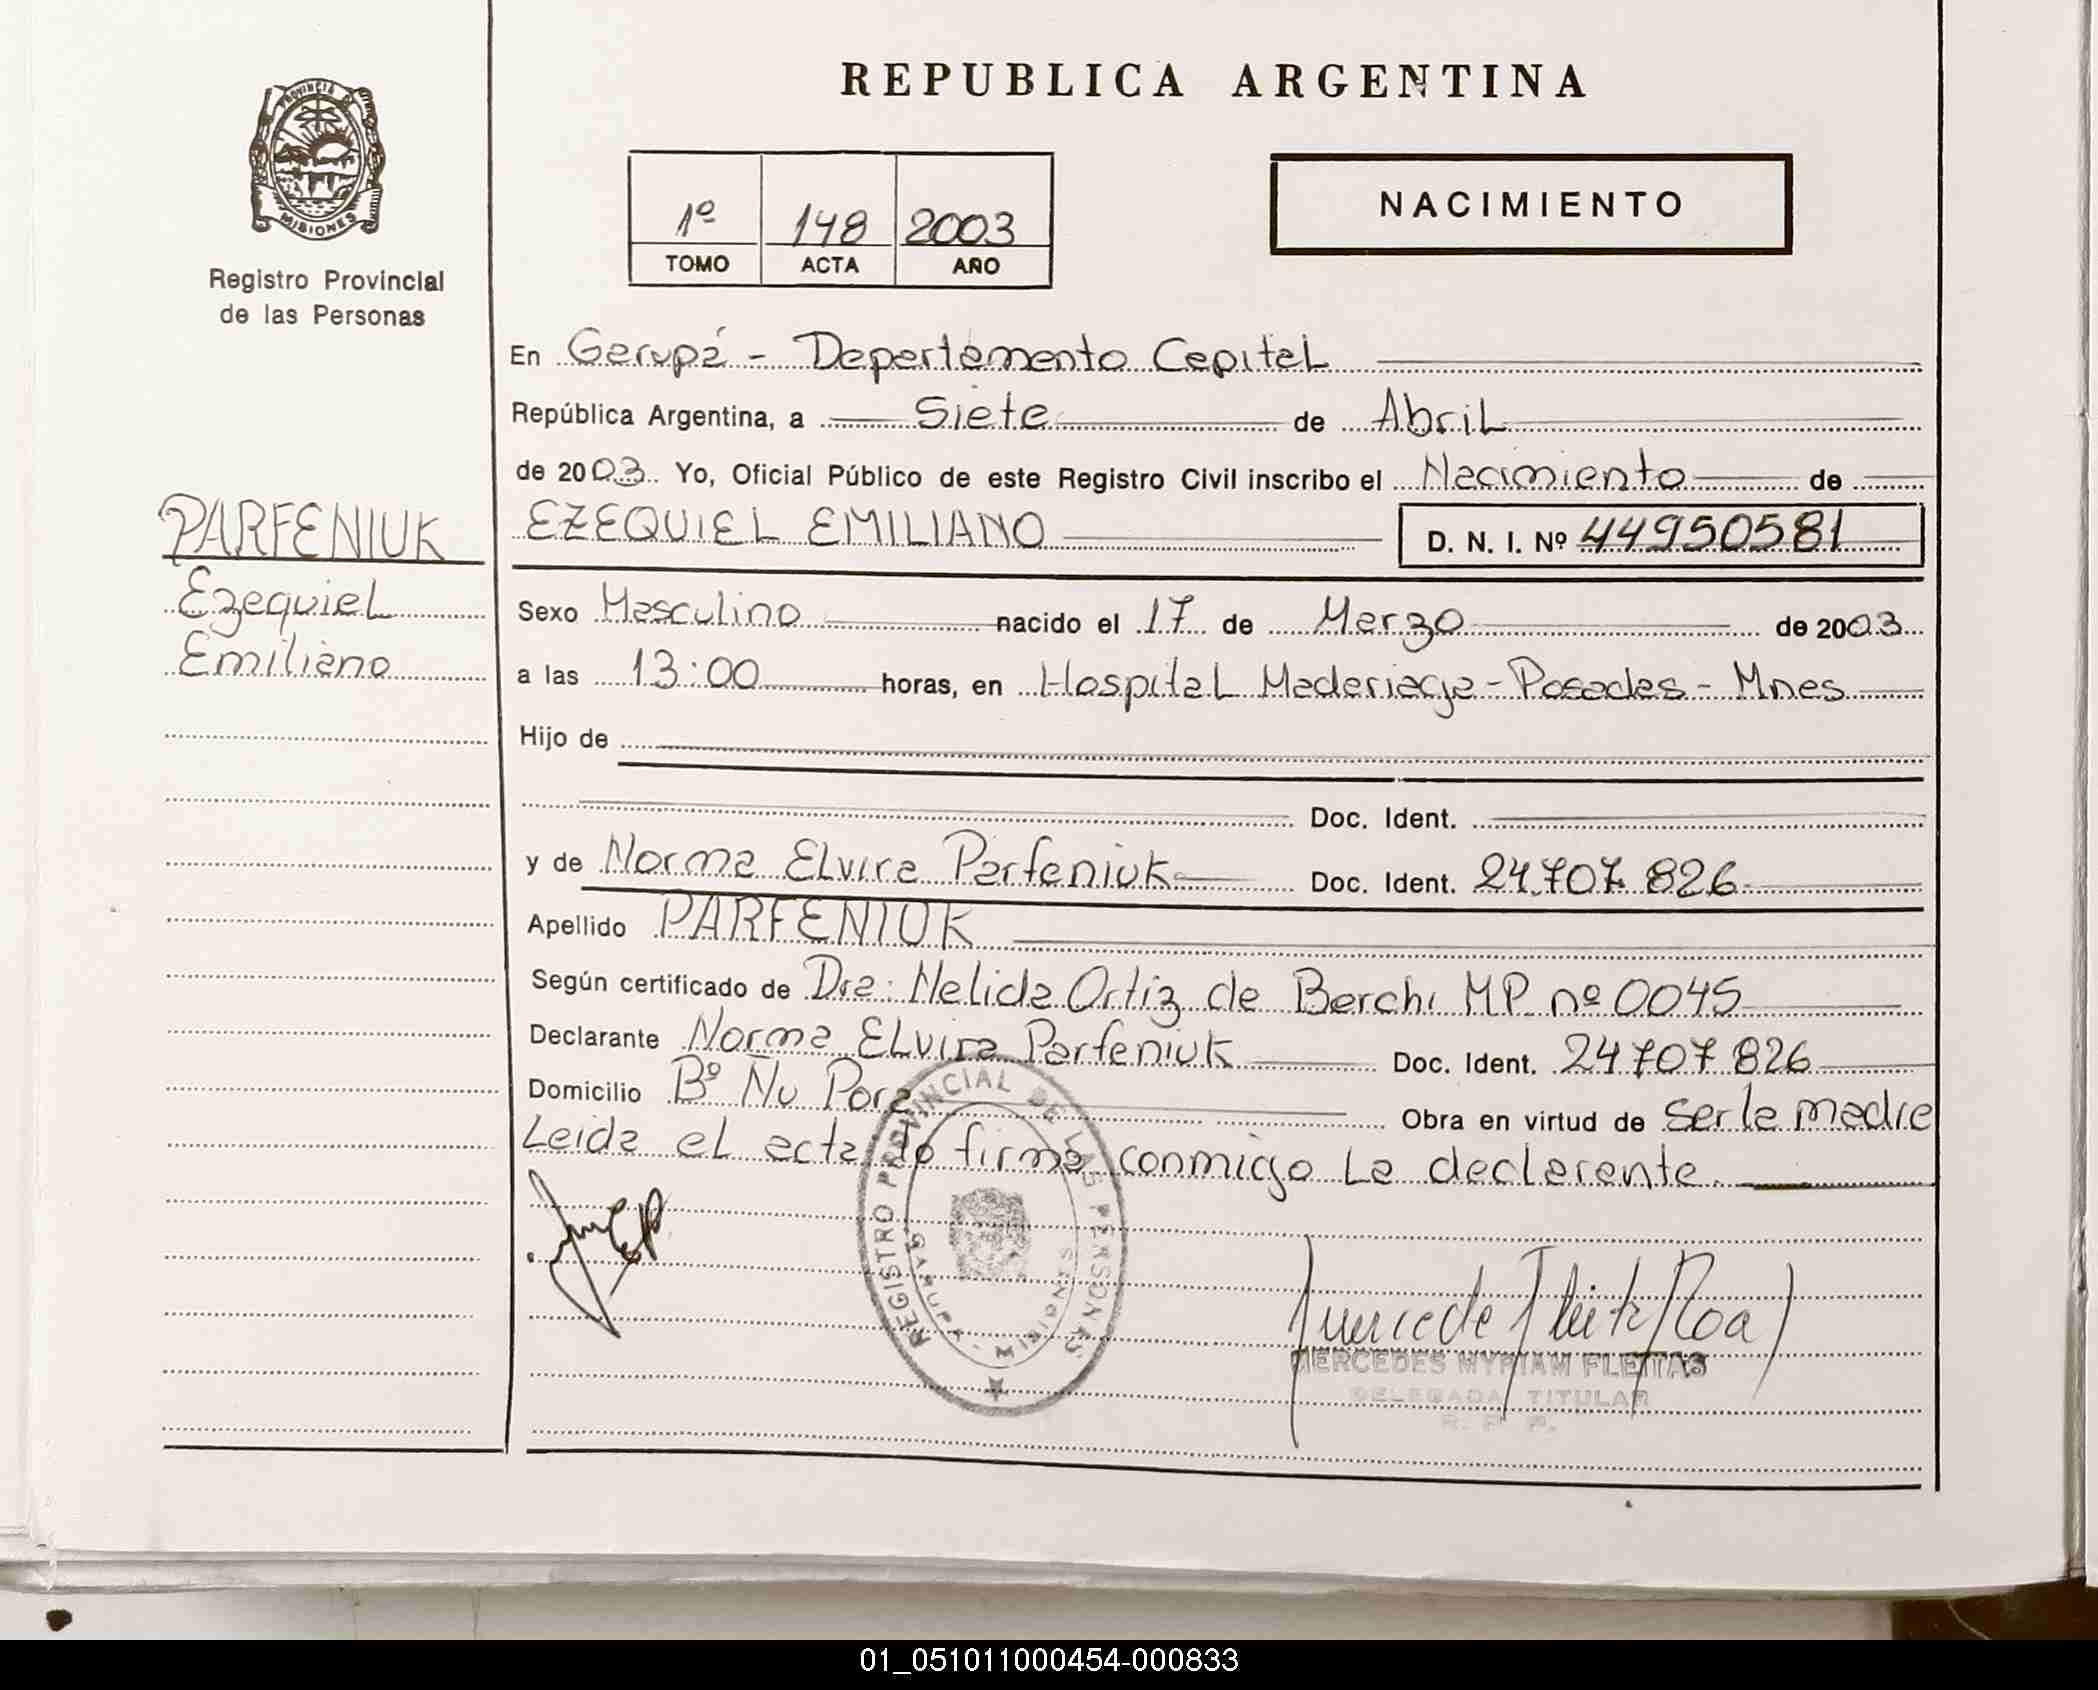 REPUBLICA ARGENTINA
PROVINCIA DE
MISIONES
Registro Provincial
de las Personas
1º 148 2003
TOMO ACTA AÑO
NACIMIENTO
En Garupá - Departamento Capital
República Argentina, a Siete de Abril
de 2003. Yo, Oficial Público de este Registro Civil inscribo el Nacimiento de
PARFENIUK
Ezequiel
Emiliano
EZEQUIEL EMILIANO D. N. I. Nº 44950581
Sexo Masculino nacido el 17 de Marzo de 2003
a las 13:00 horas, en Hospital Madariaga - Posadas - Mnes
Hijo de
Doc. Ident.
y de Norma Elvira Parfeniuk Doc. Ident. 24.707.826
Apellido PARFENIUK
Según certificado de Dra: Nelida Ortiz de Berchi MP nº 0045
Declarante Norma Elvira Parfeniuk Doc. Ident. 24707826
Domicilio Bº Ñu Pora Obra en virtud de ser la madre
Leida el acta la firma conmigo La declarante.
REGISTRO PROVINCIAL DE LAS PERSONAS
GARUPA - MISIONES
MERCEDES MYRIAM FLEITAS
DELEGADA TITULAR
R. P. P.
01_051011000454-000833